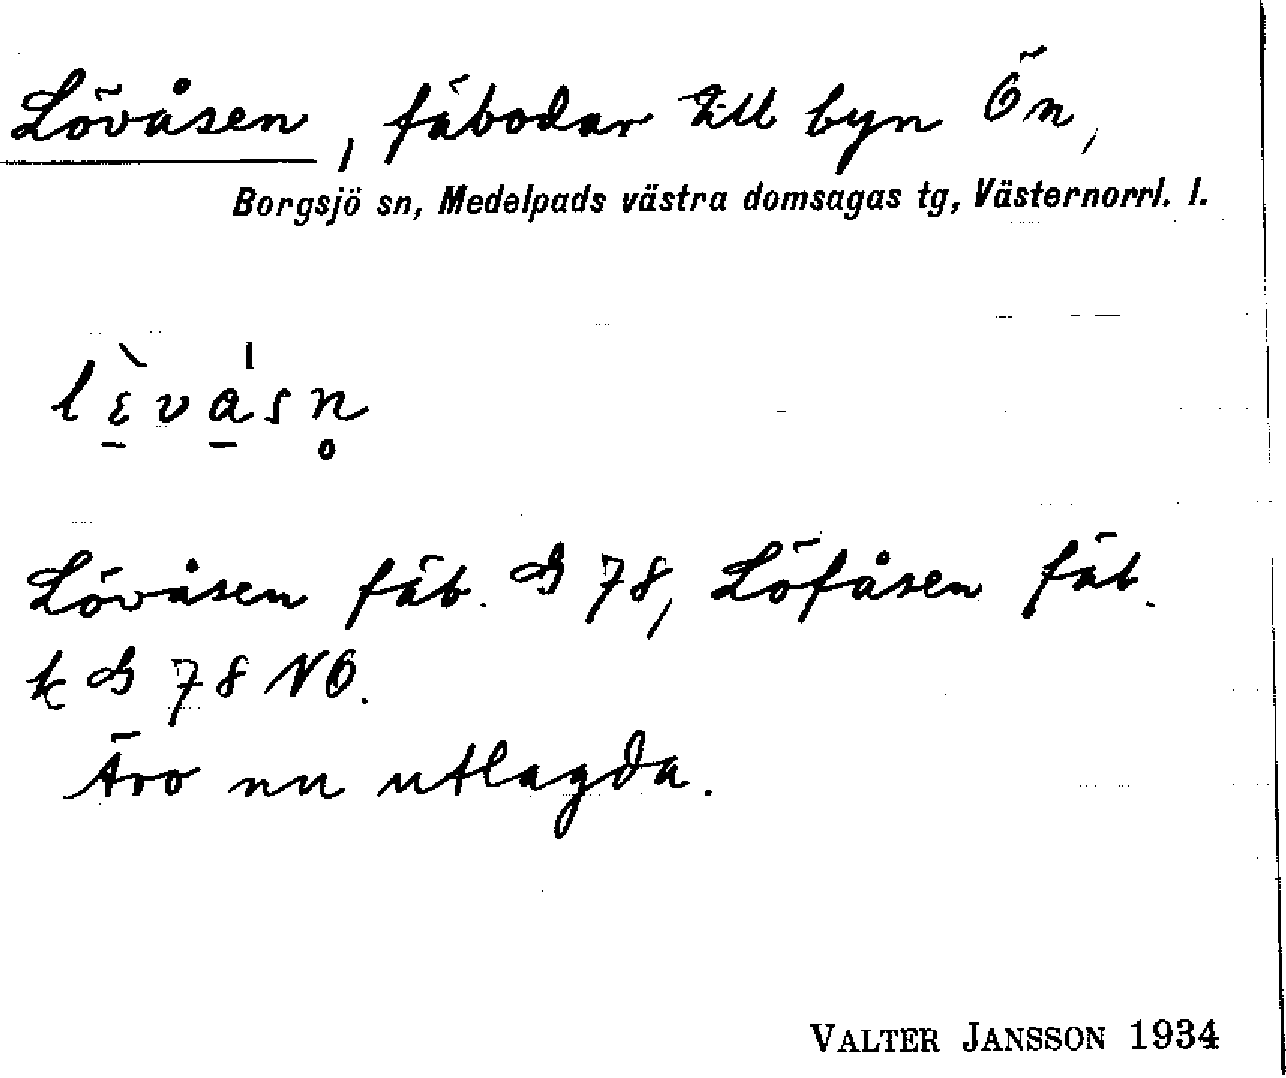 Lövåsen, fäbodar till byn Ön,
Borgsjö sn, Medelpads västra domsagas tg, Västernorrl. l.
lɛ̱̀va̱ˈsn̥
Lövåsen fäb. G 78, Löfåsen fäb.
k G 78 NO.
Äro nu utlagda.
VALTER JANSSON 1934